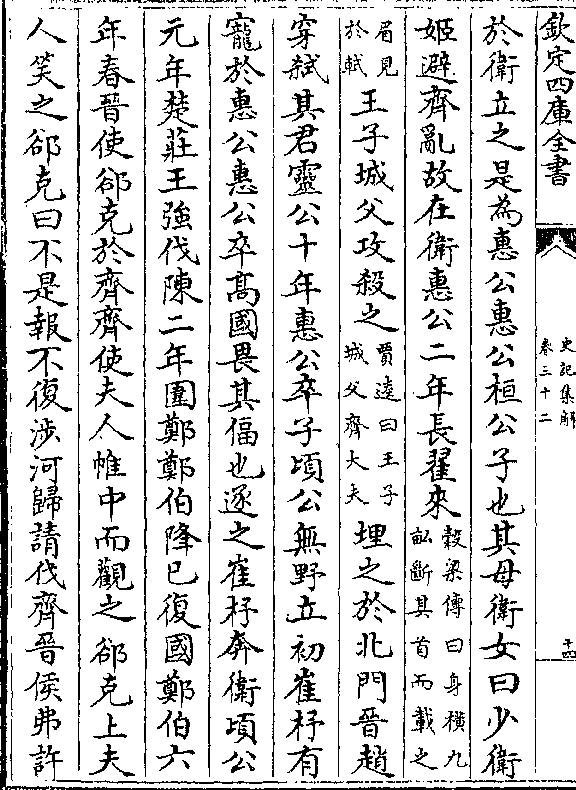 欽定四庫全書
史記集解
卷三十二
十四
於衛立之是為惠公惠公桓公子也其母衛女曰少衛
姬避齊亂故在衛惠公二年長翟來穀梁傳曰身橫九畝斷其首而載之
眉見於軾王子城父攻殺之賈逵曰王子城父齊大夫埋之於北門晉趙
穿弒其君靈公十年惠公卒子頃公無野立初崔杼有
寵於惠公惠公卒髙國畏其偪也逐之崔杼奔衛頃公
元年楚莊王強伐陳二年圍鄭鄭伯降已復國鄭伯六
年春晉使郤克於齊齊使夫人帷中而觀之郤克上夫
人笑之郤克曰不是報不復涉河歸請伐齊晉侯弗許